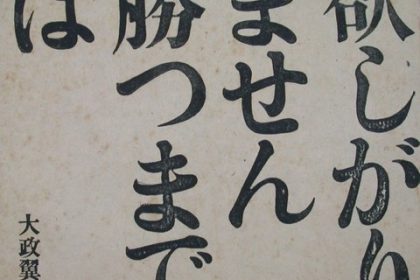 欲しがり
ません
勝つまで
は
大政翼